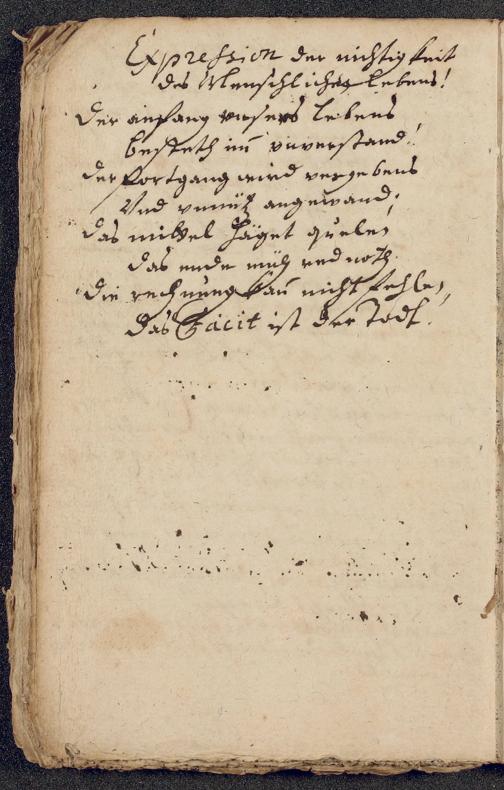 Expression der nichtigkeit
des Menschlichen Lebens!
Der anfang unsers lebens
besteth im unverstand!
der fortgang wird vergebens
Und unnütz angewand;
das mittel häget quelen
das ende müh und noth.
die rechnung kan nicht fehlen,
Das Facit ist der Todt.